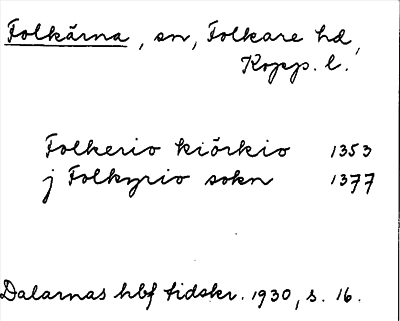 Folkärna, sn, Folkare hd,
Kopp. l.
Folkerio kiörkio 1353
j Folkyrio sokn 1377
Dalarnas hbf tidskr. 1930, s. 16.